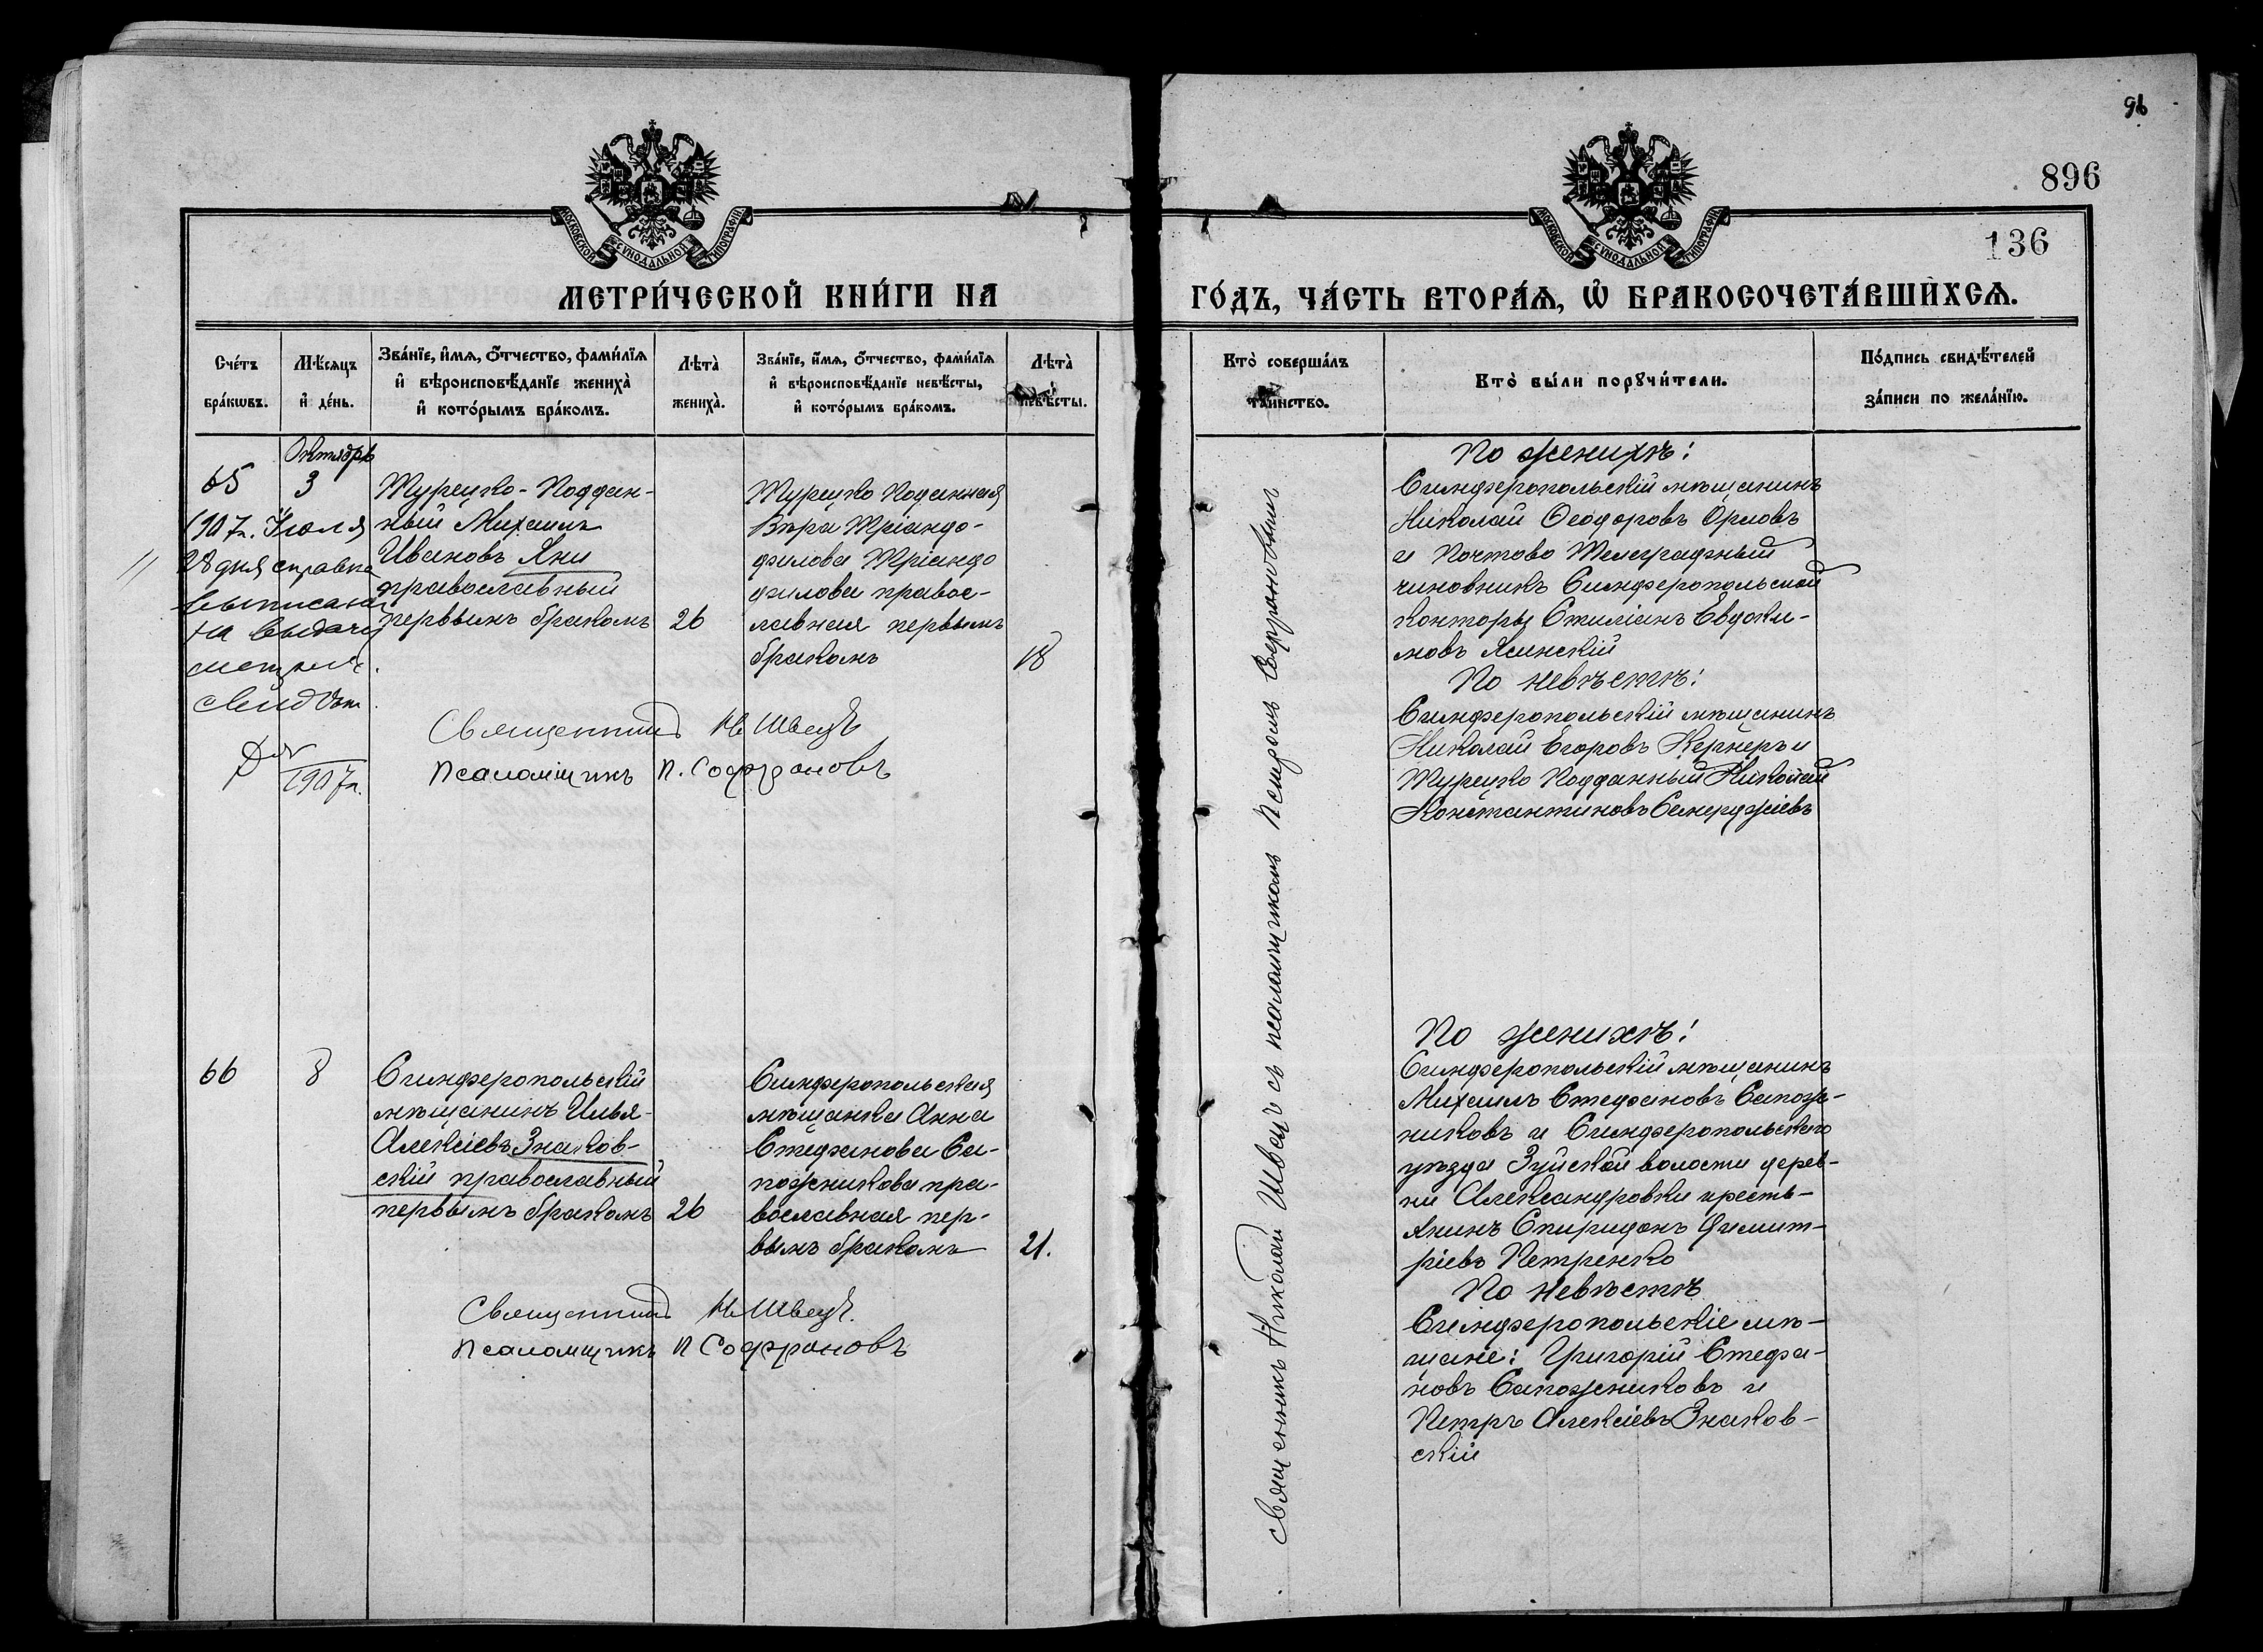 96
896
136
МОСКОВСКОЙ СѴНОДАЛЬНОЙ ТИПОГРАФІИ
МОСКОВСКОЙ СѴНОДАЛЬНОЙ ТИПОГРАФІИ
МЕТРИ́ЧЕСКОЙ КНИ́ГИ НА
ГО́ДЪ, ЧА́СТЬ ВТОРА́Ѧ, Ѡ҆ БРАКОСОЧЕТА́ВШИХСѦ.
Сче́тъ
бра́кѡвъ.
Мѣ́сяцъ
и҆ де́нь.
Зва́нїе, и҆́мя, ѻ҆́тчество, фами́лїя
и҆ вѣроисповѣ́данїе жениха̀
и҆ кото́рымъ бра́комъ.
Лѣта̀
жениха̀.
Зва́нїе, и҆́мя, ѻ҆́тчество, фами́лїя
и҆ вѣроисповѣ́данїе невѣ́сты,
и҆ кото́рымъ бра́комъ.
Лѣта̀
невѣ́сты.
Кто̀ соверша́лъ
та́инство.
Кто̀ бы́ли порꙋчи́тели.
По́дпись свидѣ́телей
за́писи по жела́нїю.
Октябрь
65
3
1907г. Июля
28 дня справка
выписана
на выдачу
метрич.
свид
1907г.
Турецко-Поддан-
ный Михаилъ
Ивановъ Яни
православный
первымъ бракомъ
26
Турецко Поданная
Вѣра Тріандо-
филова Тріандо
филова правос-
лавная первымъ
бракомъ
18
Священникъ Н. Швецъ
Псаломщикъ П. Софроновъ
Священникъ Николай Швецъ съ псаломщикомъ Петромъ Софроновымъ
По женихѣ:
Симферопольскій мѣщанинъ
Николай Ѳеодоровъ Орловъ
и Почтово Телеграфный
чиновникъ Симферопольской
конторы Стиліанъ Евдоки-
мовъ Ясинскій
По невѣстѣ:
Симферопольскій мѣщанинъ
Николай Егоровъ Кернеръ и
Турецко Подданный Николай
Константиновъ Семерджіевъ
66
8
Симферопольскій
мѣщанинъ Илья
Алексіевъ Знаков-
скій православный
первымъ бракомъ
26
Симферопольская
мѣщанка Анна
Стефанова Са-
пожникова пра-
вославная пер-
вымъ бракомъ
21.
Священникъ Н. Швецъ.
Псаломщикъ П Софроновъ
По женихѣ!
Симферопольскій мѣщанинъ
Михаилъ Стефановъ Сапож-
никовъ и Симферопольскаго
уѣзда Зуйской волости дерев-
ни Александровки кресть-
янинъ Спиридонъ Димит-
ріевъ Петренко
По невѣстѣ
Симферопольскіе мѣ-
щане: Григорій Стефа-
новъ Сапожниковъ и
Петръ Алексіевъ Знаков-
скій